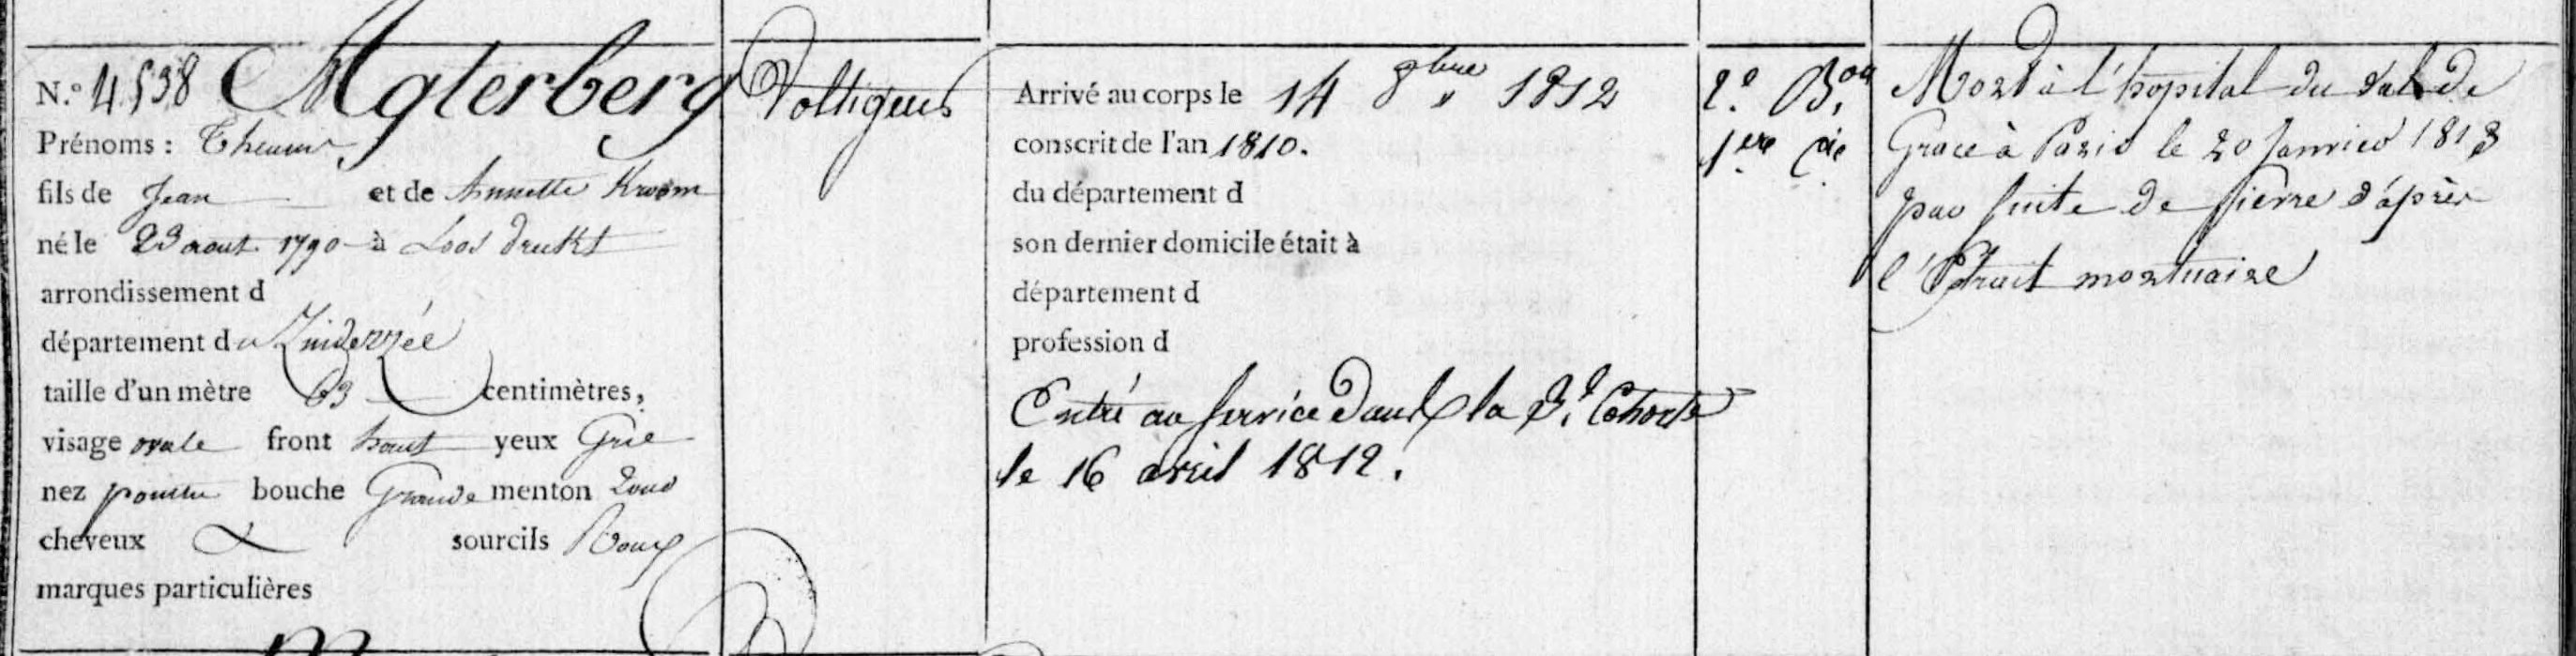 N.º 4538 Agterberg
Prénoms : Theunis
fils de Jean et de Annette Kroom
né le 23 aout 1790 à Loos drukt
arrondissement d
département du Zuiderzée
taille d'un mètre 63 centimètres,
visage ovale front haut yeux Gris
nez pointu bouche Grande menton rond
cheveux & sourcils Roux
marques particulières
Voltigeur
Arrivé au corps le 14 8bre 1812
conscrit de l'an 1810.
du département d
son dernier domicile était à
département d
profession d
Entré au service dans la 3e Cohorte
le 16 avril 1812.
2e Bon
1ere Cie
Mort à l'hopital du Val de
Grace à Paris le 20 Janvier 1813
par suite de fievre d'après
l'Extrait mortuaire